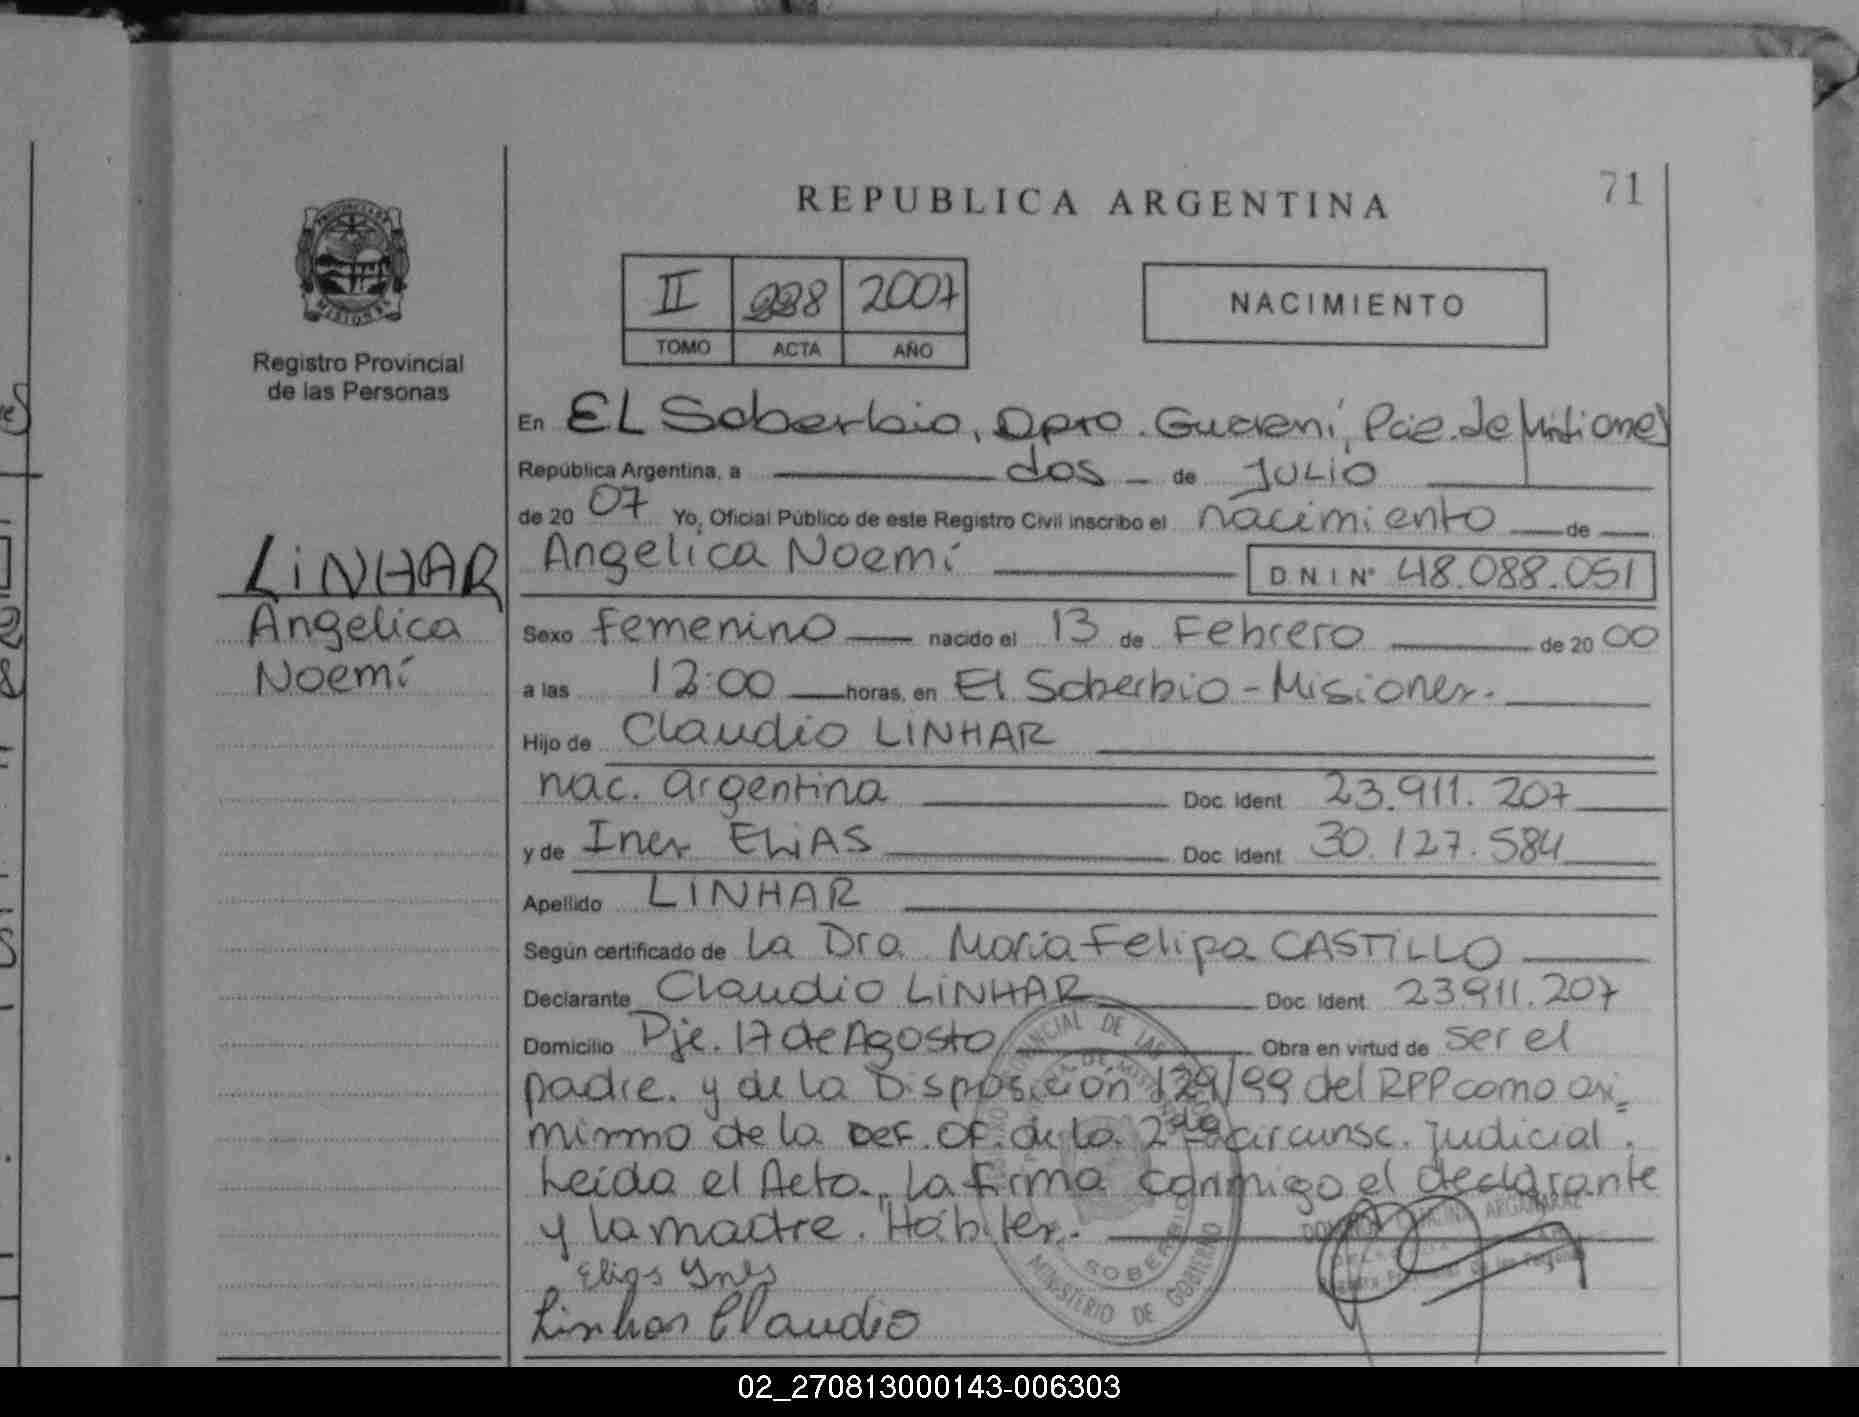 71
REPUBLICA ARGENTINA
II 2007
TOMO ACTA AÑO
NACIMIENTO
Registro Provincial
de las Personas
En EL Soberbio, Dpto. Guarani, Pcie. de Misiones
República Argentina, a dos de JULIO
de 20 07 Yo, Oficial Público de este Registro Civil inscribo el nacimiento de
LINHAR
Angelica
Noemí
Angelica Noemí D N I Nº 48.088.051
Sexo Femenino nacido el 13 de Febrero de 20 00
a las 12:00 horas, en El Soberbio - Misiones.
Hijo de Claudio LINHAR
nac. argentina Doc. Ident 23.911.207
y de Ines ELIAS Doc. Ident 30.127.584
Apellido LINHAR
Según certificado de La Dra María Felipa CASTILLO
Declarante Claudio LINHAR Doc. Ident 23911.207
Domicilio Pje. 17 de Agosto Obra en virtud de ser el
padre. y de la Disposición 129/99 del RPP como asi=
mismo de la Def. Of. de la 2da circunsc. Judicial.
Leída el Acta, la firma conmigo el declarante
y la madre. Hábiles.
Elias Ynes
Linhar Claudio
PROVINCIAL DE LAS
SOBERBIO
MINISTERIO DE GOBIERNO
02_270813000143-006303